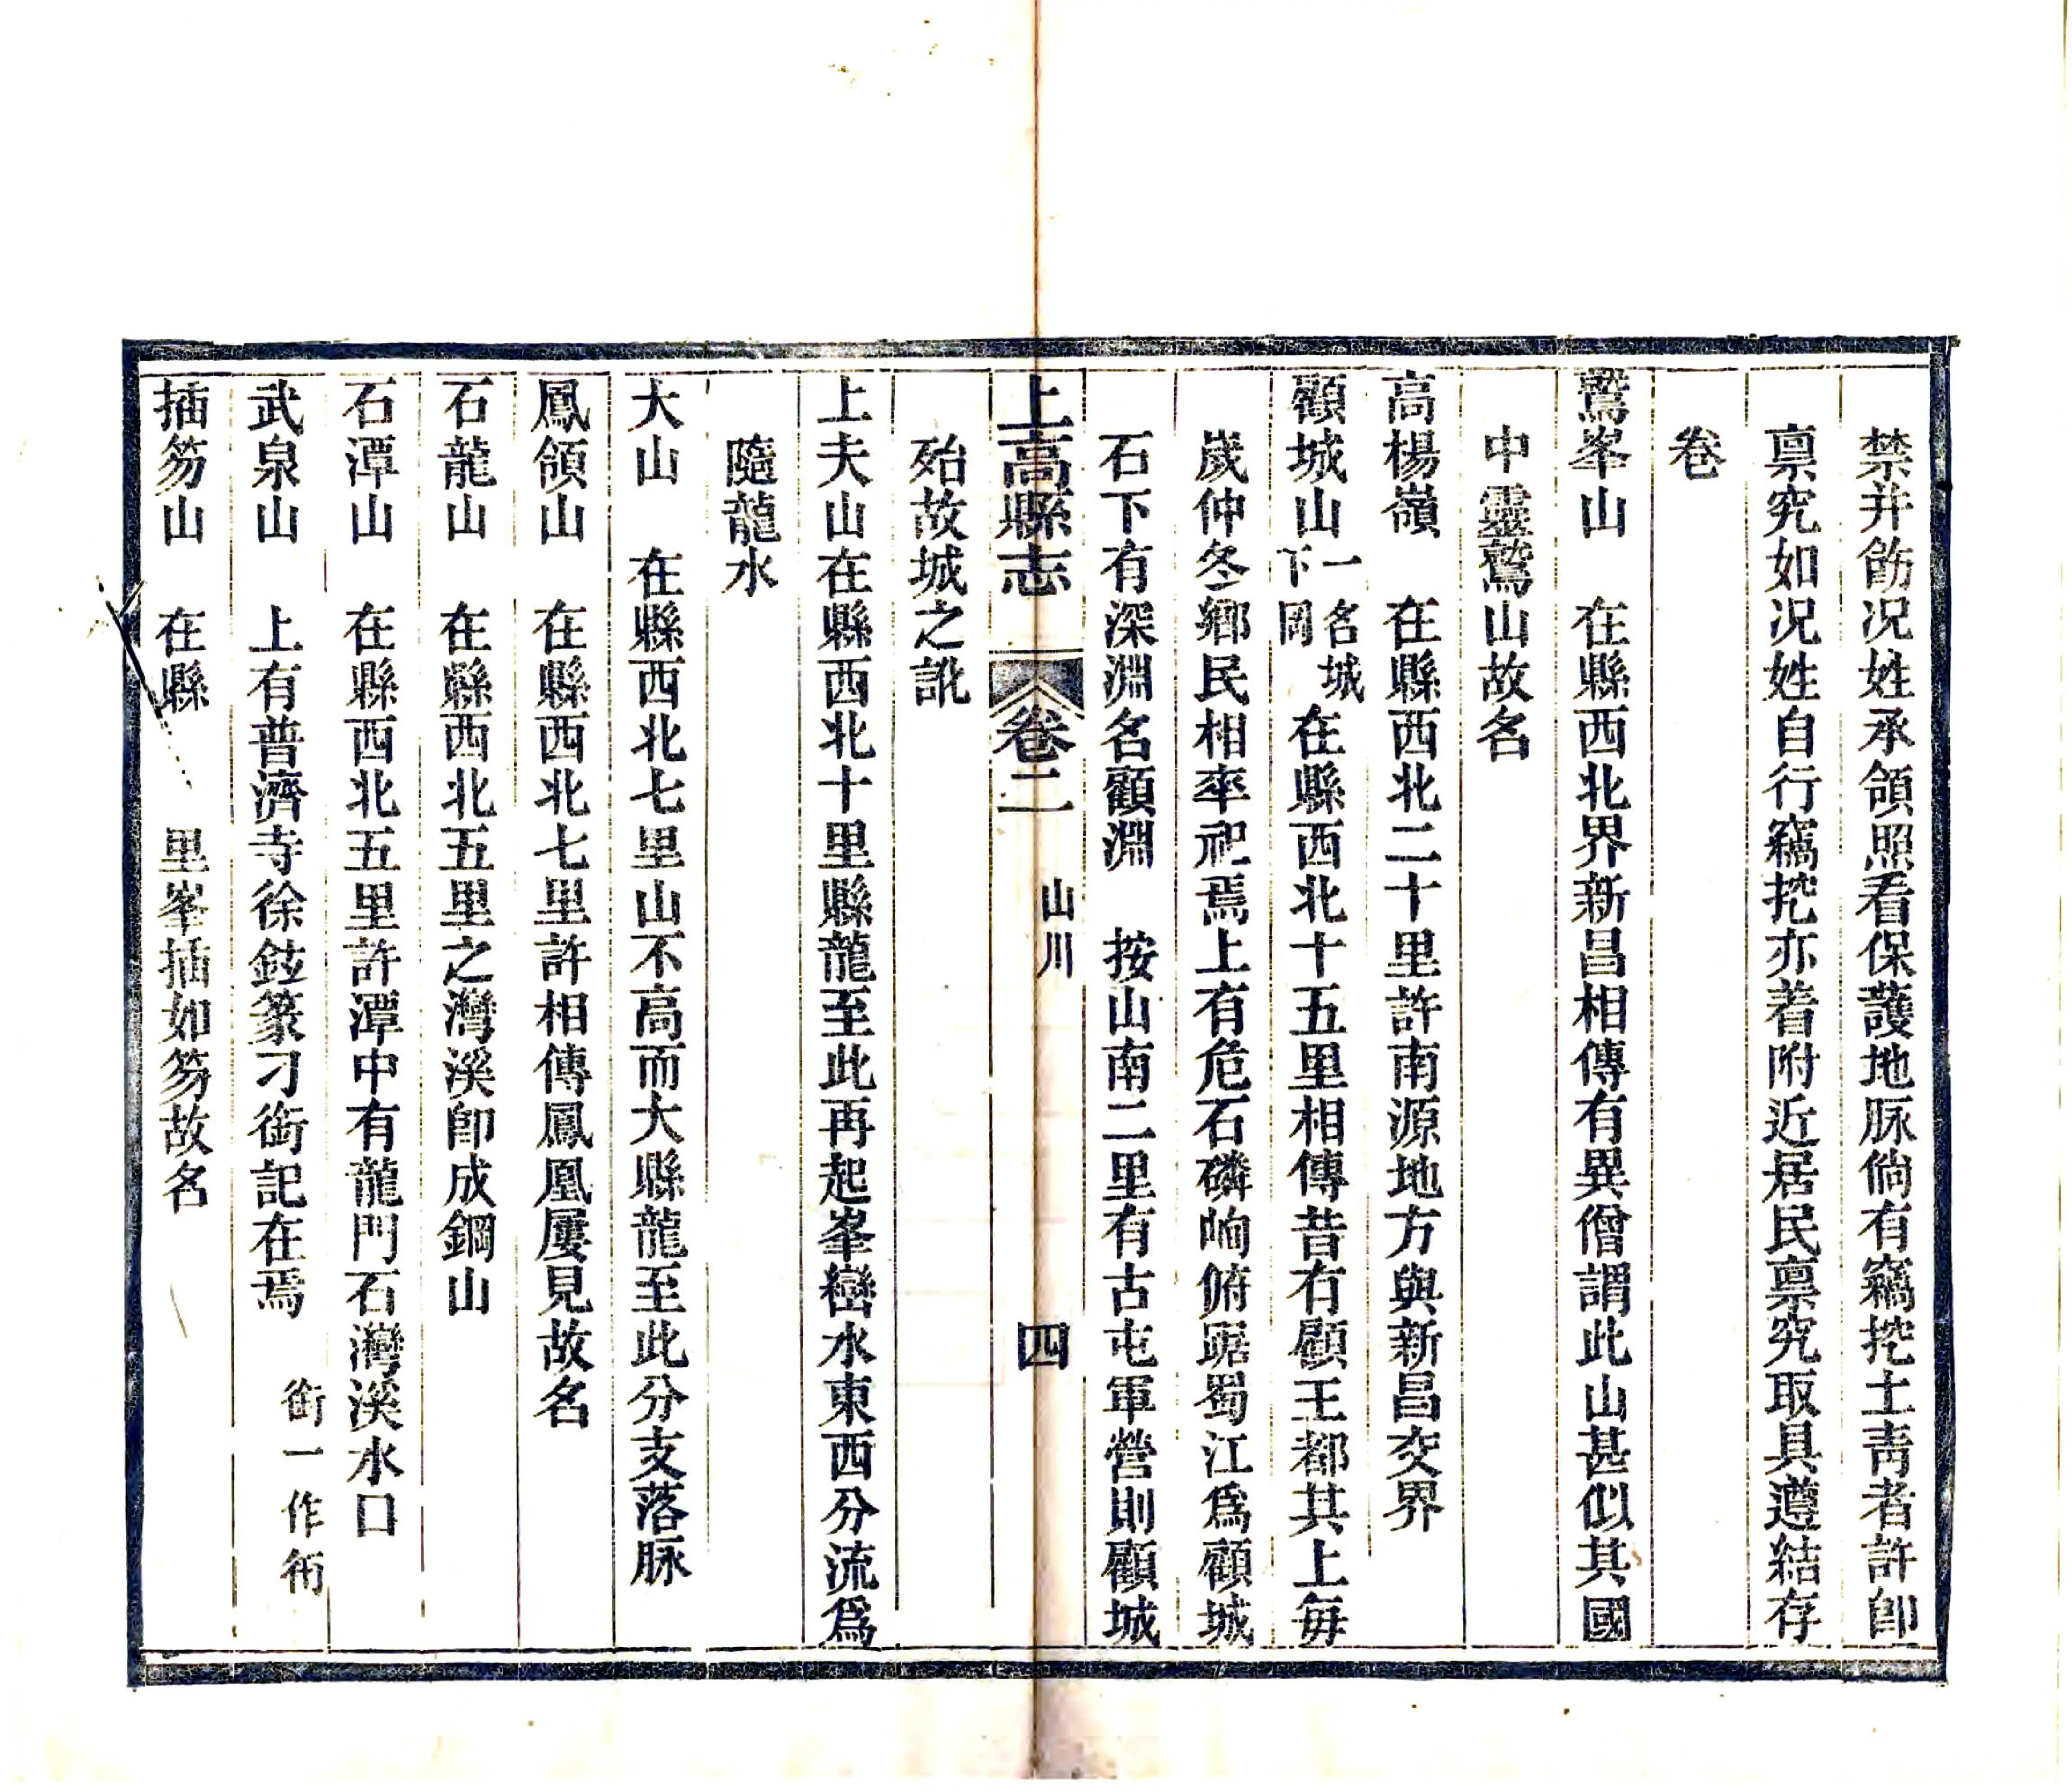 禁并飭况姓承領照看保護地脉倘有竊挖土靑者許卽
禀究如况姓自行竊挖亦着附近居民禀究取具遵結存
卷
鷲峯山　在縣西北界新昌相傳有異僧謂此山甚似其國
中靈鷲山故名
高楊嶺　在縣西北二十里許南源地方與新昌交界
顧城山一名城下岡在縣西北十五里相傳昔有顧王都其上每
歲仲冬鄉民相率祀焉上有危石磷峋俯踞蜀江爲顧城
石下有深淵名顧淵　按山南二里有古屯軍營則顧城
上高縣志　卷二　山川　四
殆故城之訛
上夫山在縣西北十里縣龍至此再起峯巒水東西分流爲
隨龍水
大山　在縣西北七里山不高而大縣龍至此分支落脉
鳳頷山　在縣西北七里許相傳鳳凰屢見故名
石龍山　在縣西北五里之灣溪卽成鋼山
石潭山　在縣西北五里許潭中有龍門石灣溪水口
武泉山　上有普濟寺徐鉉篆刁衙記在焉　衙一作衎
插笏山　在縣　里峯插如笏故名